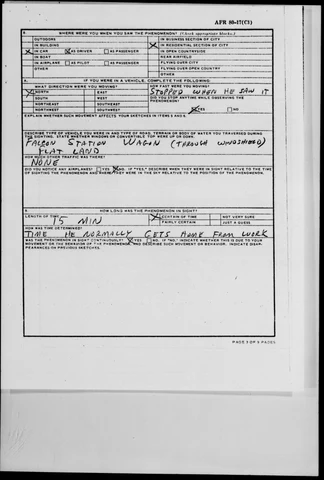 AFR 80-17(C1)
WHERE WERE YOU WHEN YOU SAW THE PHENOMENON? (Check appropriate blocks.)
OUTDOORS
IN BUSINESS SECTION OF CITY
IN BUILDING
X IN RESIDENTIAL SECTION OF CITY
X IN CAR X AS DRIVER AS PASSENGER
IN OPEN COUNTRYSIDE
IN BOAT
NEAR AIRFIELD
IN AIRPLANE AS PILOT AS PASSENGER
FLYING OVER CITY
OTHER
FLYING OVER OPEN COUNTRY
OTHER
IF YOU WERE IN A VEHICLE, COMPLETE THE FOLLOWING:
WHAT DIRECTION WERE YOU MOVING?
HOW FAST WERE YOU MOVING?
X NORTH EAST
STOPPED WHEN HE SAW IT
SOUTH WEST
DID YOU STOP ANYTIME WHILE OBSERVING THE PHENOMENON?
NORTHEAST SOUTHEAST
NORTHWEST SOUTHWEST
X YES NO
EXPLAIN WHETHER SUCH MOVEMENT AFFECTS YOUR SKETCHES IN ITEMS 2 AND 3.
DESCRIBE TYPE OF VEHICLE YOU WERE IN AND TYPE OF ROAD, TERRAIN OR BODY OF WATER YOU TRAVERSED DURING
THE SIGHTING. STATE WHETHER WINDOWS OR CONVERTIBLE TOP WERE UP OR DOWN.
FALCON STATION WAGON (THROUGH WINDSHIELD)
FLAT LAND
HOW MUCH OTHER TRAFFIC WAS THERE?
NONE
DID YOU NOTICE ANY AIRPLANES? YES X NO. IF "YES," DESCRIBE WHEN THEY WERE IN SIGHT RELATIVE TO THE TIME
OF SIGHTING THE PHENOMENON AND WHERE THEY WERE IN THE SKY RELATIVE TO THE POSITION OF THE PHENOMENON.
HOW LONG WAS THE PHENOMENON IN SIGHT?
LENGTH OF TIME
15 MIN
X CERTAIN OF TIME NOT VERY SURE
FAIRLY CERTAIN JUST A GUESS
HOW WAS TIME DETERMINED?
TIME HE NORMALLY GETS HOME FROM WORK
WAS THE PHENOMENON IN SIGHT CONTINUOUSLY? X YES NO. IF "NO," INDICATE WHETHER THIS IS DUE TO YOUR
MOVEMENT OR THE BEHAVIOR OF THE PHENOMENON AND DESCRIBE SUCH MOVEMENT OR BEHAVIOR. INDICATE DISAP-
PEARANCES ON PREVIOUS SKETCHES.